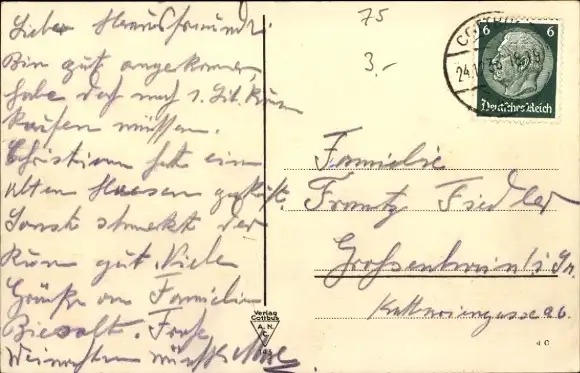 Lieber Hausfreund!
Bin gut angekommen,
habe doch noch 1. Lit. Rum
kaufen müssen.
Christian hat ein
alten Haasen gekauft.
Sonst schmeckt der
Rum gut. Viele
Grüße an Familie
Biesalt. Frohe
Weinachten wünscht
75
3.-
COTTBUS
24.12.35
6 6
Deutsches Reich
Familie
Frantz Fiedler
Großenhain i/
Katharinengasse 26.
Verlag
Cottbus
A. N.
C.
4 C